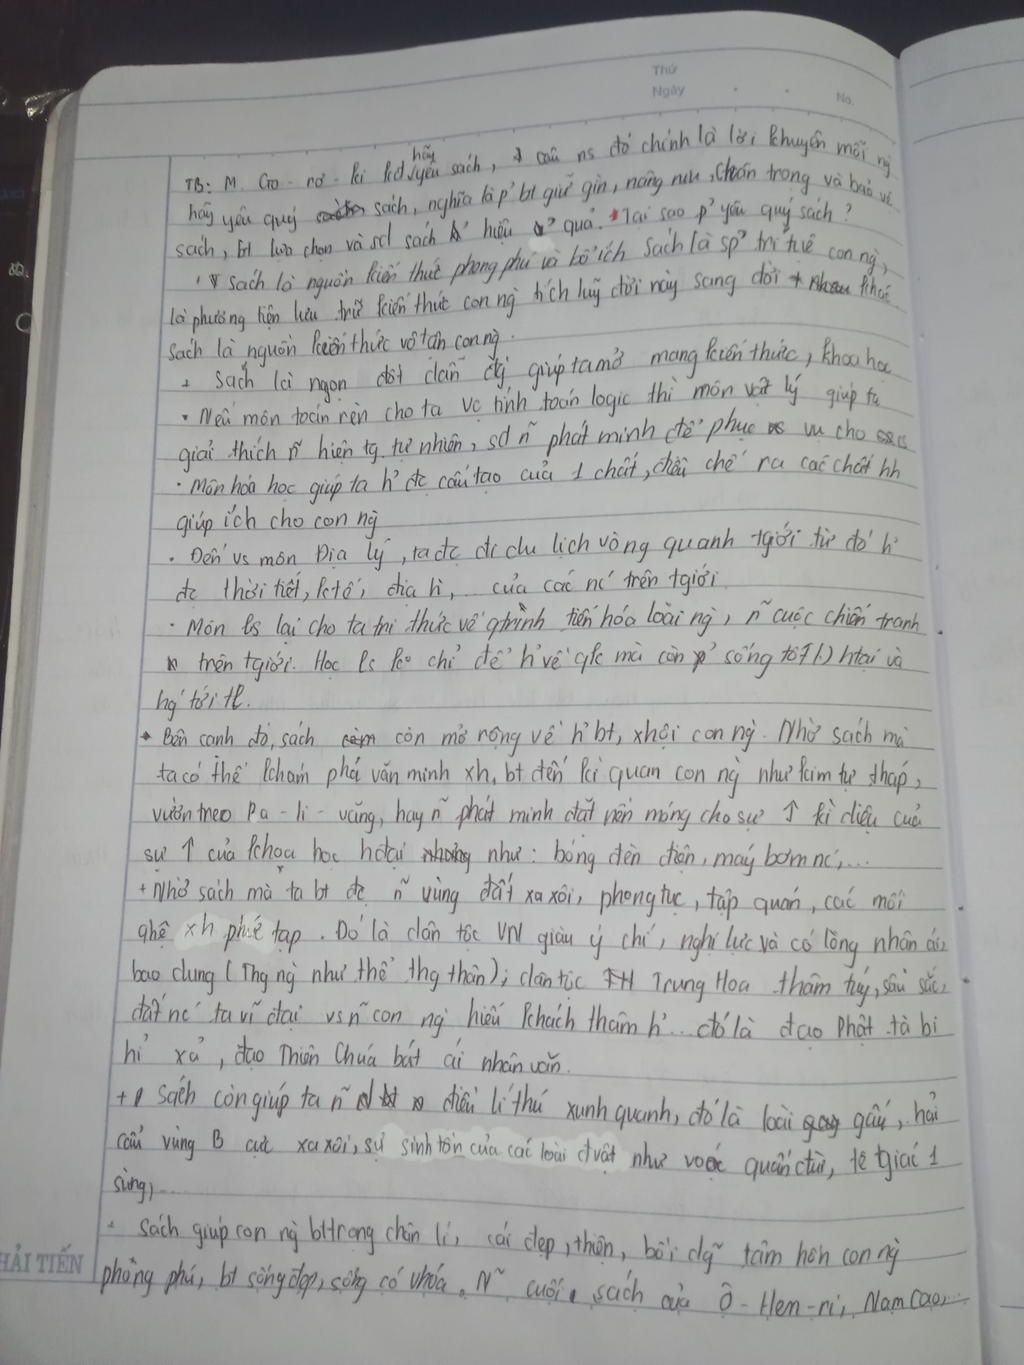 Thứ
Ngày
No.
TB: M. Go - rơ - ki kđ hãy yêu sách, câu ns đó chính là lời khuyên mỗi ng
hãy yêu quý sách, nghĩa là p' bt giữ gìn, nâng niu, trân trọng và bảo vệ
sách, bt lựa chọn và sd sách hiệu quả. Tại sao p' yêu quý sách?
Sách là nguồn kiến thức phong phú và bổ ích sách là sp' trí tuệ con ng̀,
là phương tiện lưu trữ kiến thức con ng̀ tích luỹ đời này sang đời khác
Sách là nguồn kiến thức vô tận con ng̀.
+ Sách là ngọn đốt dẫn đg giúp ta mở mang kiến thức, khoa học
. Nếu môn toán rèn cho ta vc tính toán logic thì môn vật lý giúp ta
giải thích ñ hiện tg tự nhiên, sd ñ phát minh để phục vụ cho
. Môn hóa học giúp ta h' đc cấu tạo của 1 chất, điều chế ra các chất hh
giúp ích cho con ng̀
. Đến vs môn Địa lý, ta đc đi du lịch vòng quanh tgiới từ đó h'
đc thời tiết, ktế, địa h̀, ... của các nc' trên tgiới
. Môn ls lại cho ta tri thức về qtrình tiến hóa loài ng̀, ñ cuộc chiến tranh
trên tgiới. Học ls ko chỉ để h' về qk mà còn p' sống tốt htại và
hg' tới tl.
+ Bên cạnh đó, sách còn mở rộng về h' bt, xhội con ng̀. Nhờ sách mà
ta có thể khám phá văn minh xh, bt đến kì quan con ng̀ như kim tự tháp,
vườn treo Pa - li - văng, hay ñ phát minh đặt nền móng cho sự ↑ kì diệu của
sự ↑ của khoa học hđại như: bóng đèn điện, máy bơm nc',...
+ Nhờ sách mà ta bt đc ñ vùng đất xa xôi, phong tục, tập quán, các mối
qhệ xh phức tạp. Đó là dân tộc VN giàu ý chí, nghị lực và có lòng nhân ái,
bao dung (Thg ng̀ như thể thg thân); dân tộc Trung Hoa thâm thúy, sâu sắc,
đất nc' ta vĩ đại vs ñ con ng̀ hiếu khách thâm h'... đó là đạo Phật từ bi
hỉ xả, đạo Thiên Chúa bát ái nhân văn.
+ Sách còn giúp ta ñ điều lí thú xunh quanh, đó là loài gấu, hải
cẩu vùng B cực xa xôi, sự sinh tồn của các loài đvật như voọc quần đùi, tê giác 1
sừng,...
+ Sách giúp con ng̀ bt trọng chân lí, cái đẹp, thiện, bồi dg̃ tâm hồn con ng̀
phong phú, bt sống đẹp, sống có vhóa. Ñ cuốn sách của Ô - Hen - ri, Nam Cao,...
HẢI TIẾN